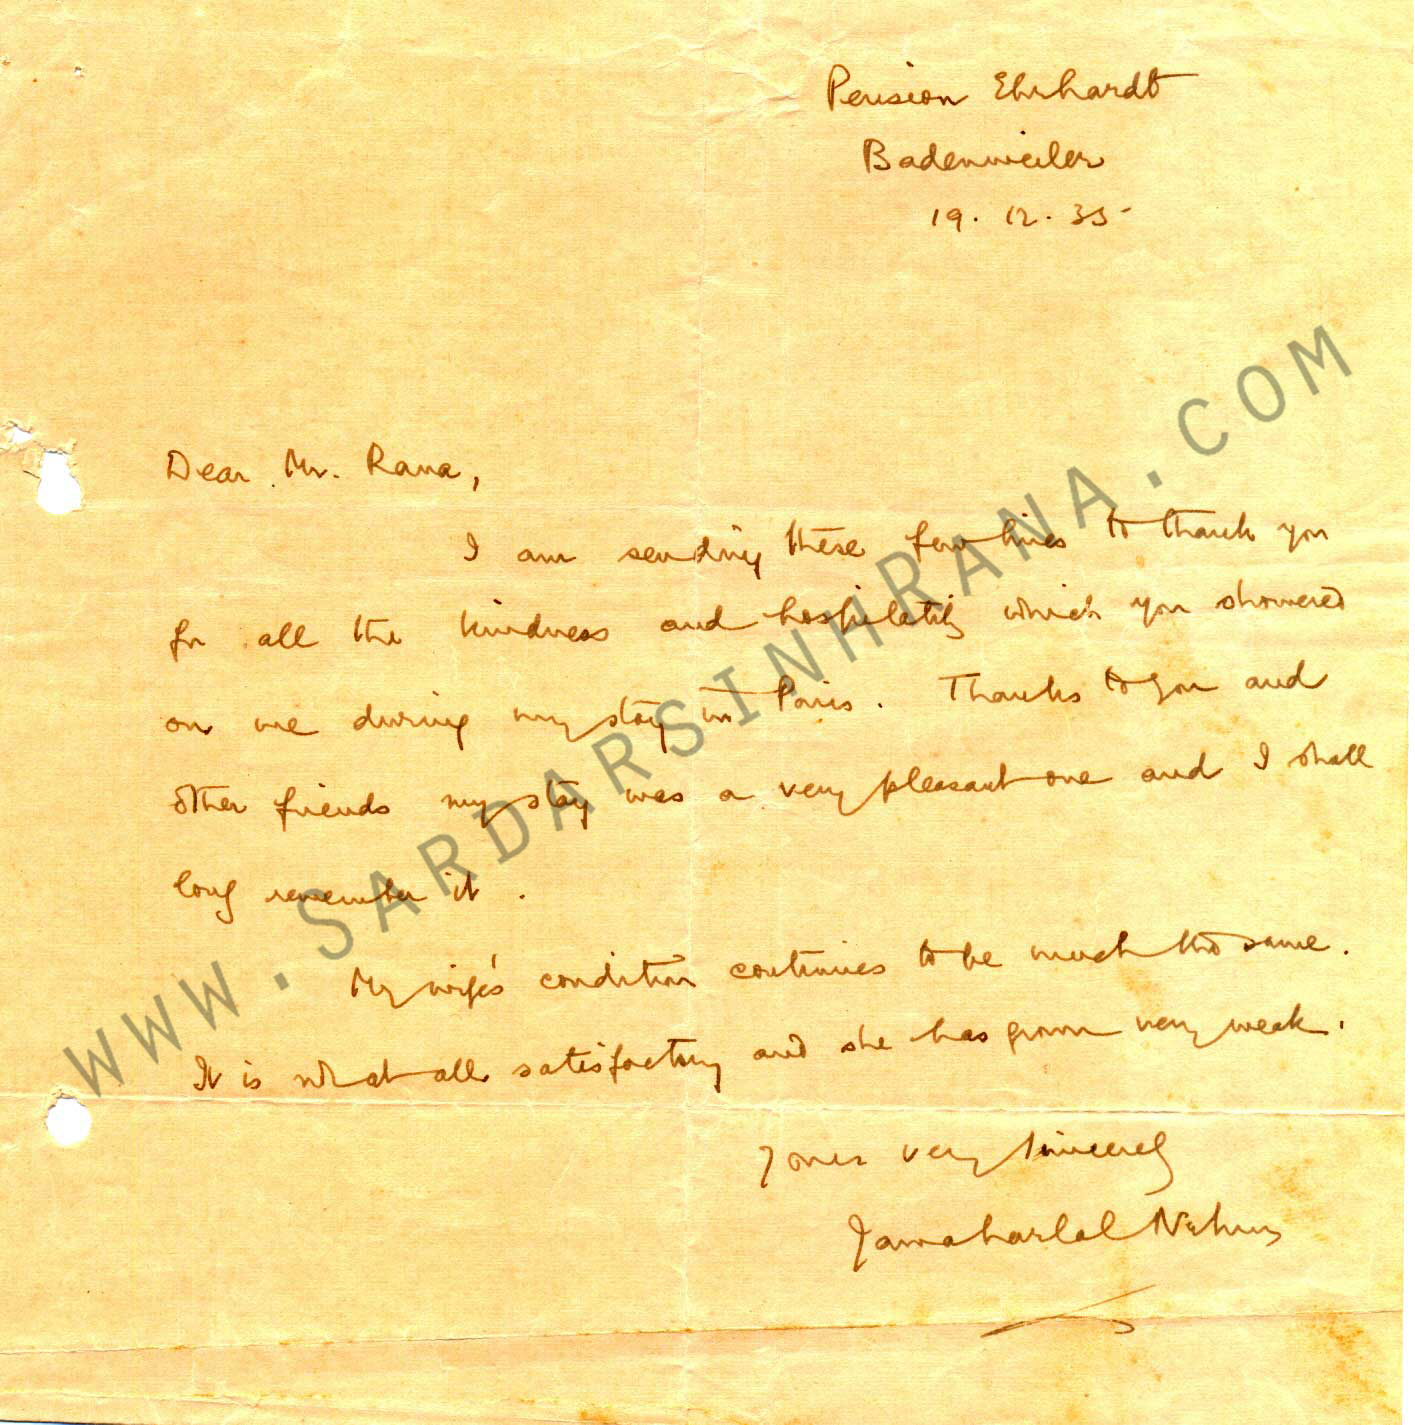 Pension Ehrhardt
Badenweiler
19. 12. 35
Dear Mr. Rana,
I am sending these few lines to thank you
for all the kindness and hospitality which you showered
on me during my stay in Paris. Thanks to you and
other friends my stay was a very pleasant one and I shall
long remember it.
My wife's condition continues to be much the same.
It is not at all satisfactory and she has grown very weak.
Yours very sincerely
Jawaharlal Nehru
WWW.SARDARSINHRANA.COM